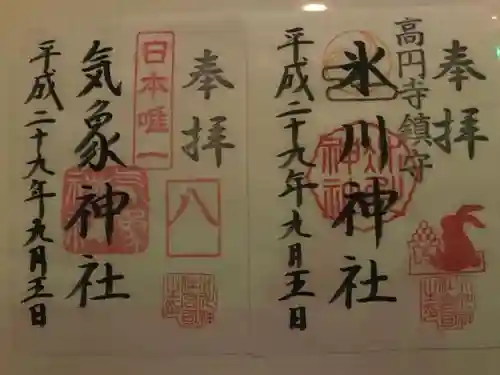 奉拝
高円寺鎮守
氷川神社
平成二十九年九月五日
奉拝
八
日本唯一
気象神社
平成二十九年九月五日